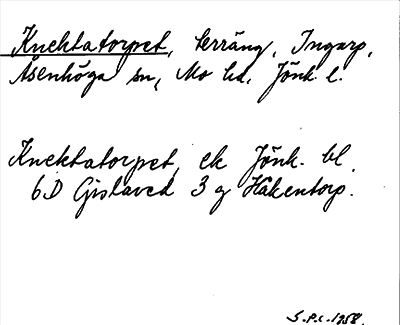 Knektatorpet, terräng, Ingarp,
Åsenhöga sn, Mo hd, Jönk. l.
Knektatorpet, ek Jönk. bl.
6D Gislaved 3 g Håkentorp.
S.P.C. 1958.